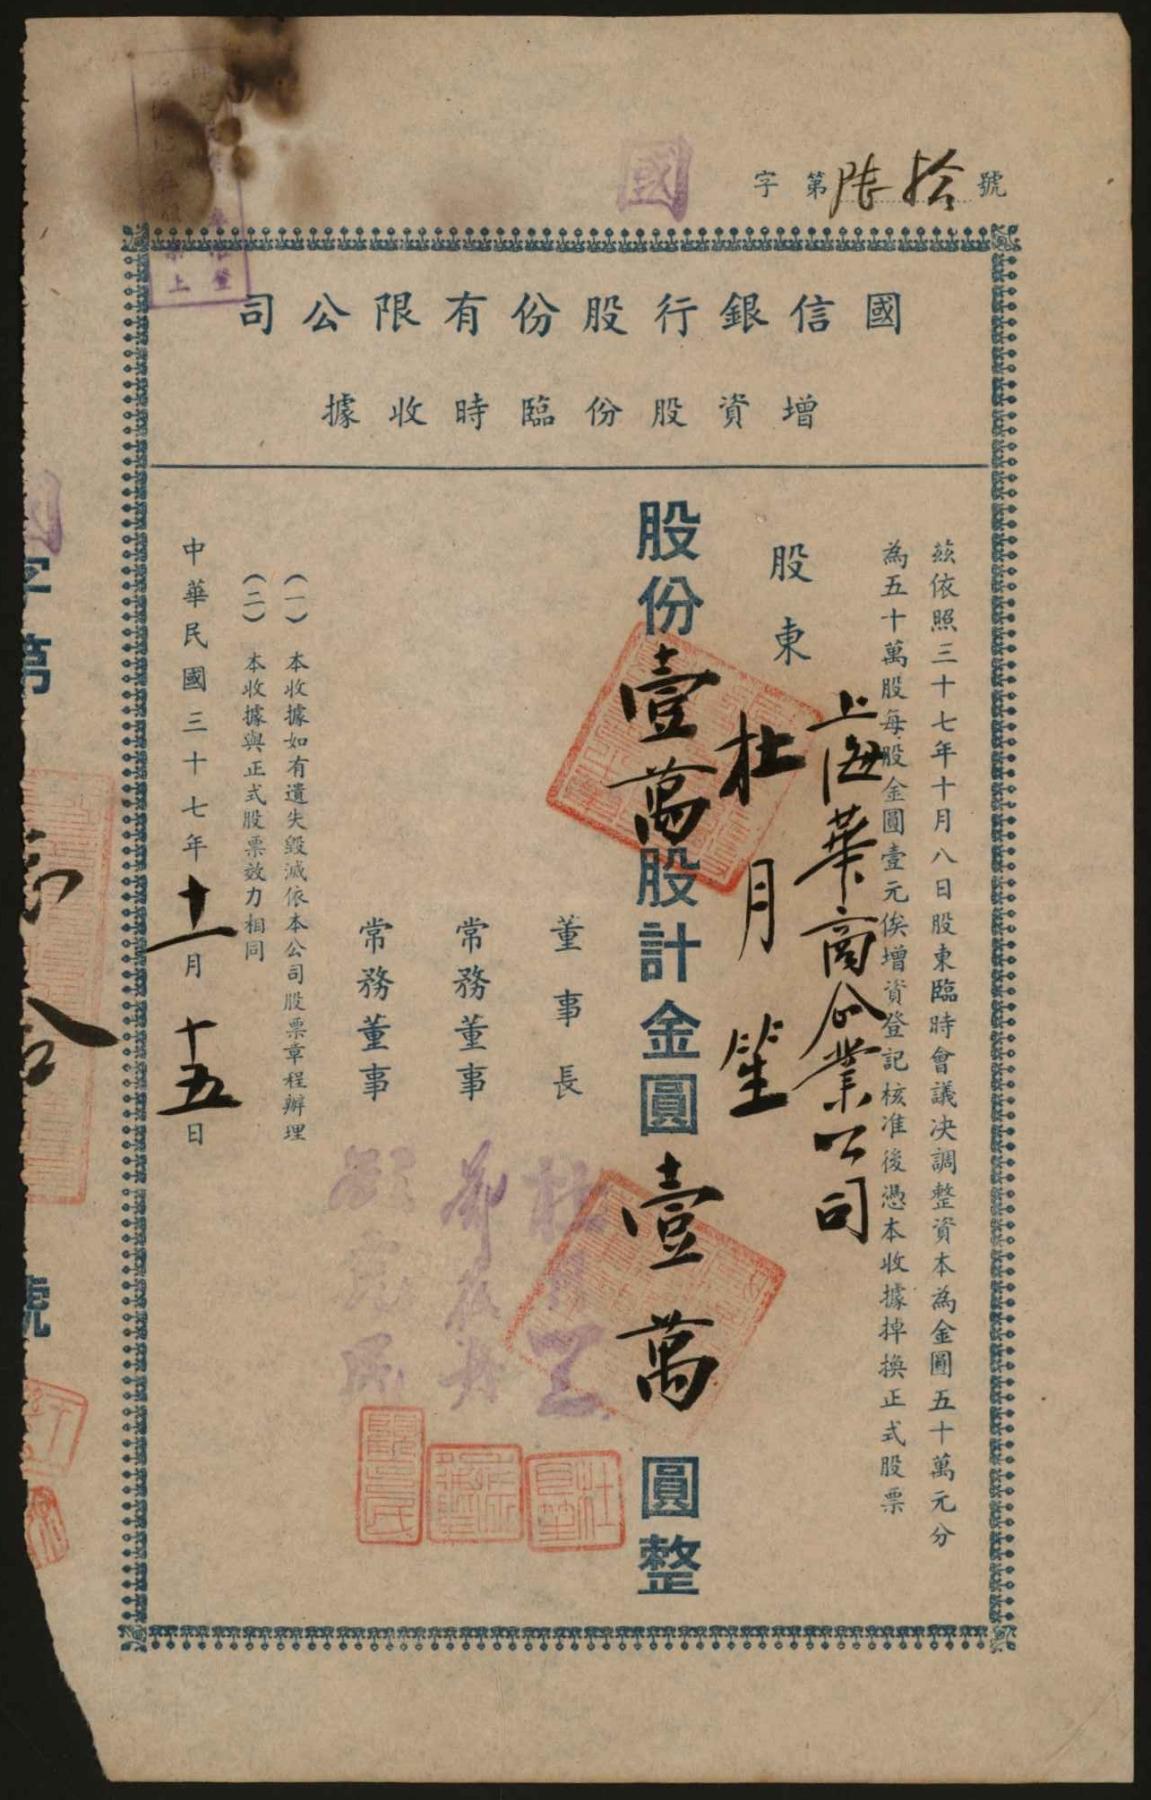 國字第陸拾號
國信銀行股份有限公司
增資股份臨時收據
茲依照三十七年十月八日股東臨時會議決調整資本為金圓五十萬元分
為五十萬股每股金圓壹元俟增資登記核准後憑本收據掉換正式股票
上海華商企業公司
股東 杜月笙
股份壹萬股計金圓壹萬圓整
董事長 杜月笙
常務董事
常務董事
(一) 本收據如有遺失毀滅依本公司股票章程辦理
(二) 本收據與正式股票效力相同
中華民國三十七年十一月十五日
國字第 號